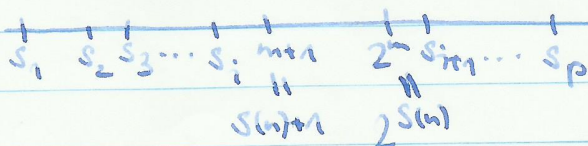 S₁ S₂ S₃ ... Sᵢ n+1 2ⁿ Sᵢ₊₁ ... Sₚ
S(n)+1 2^S(n)